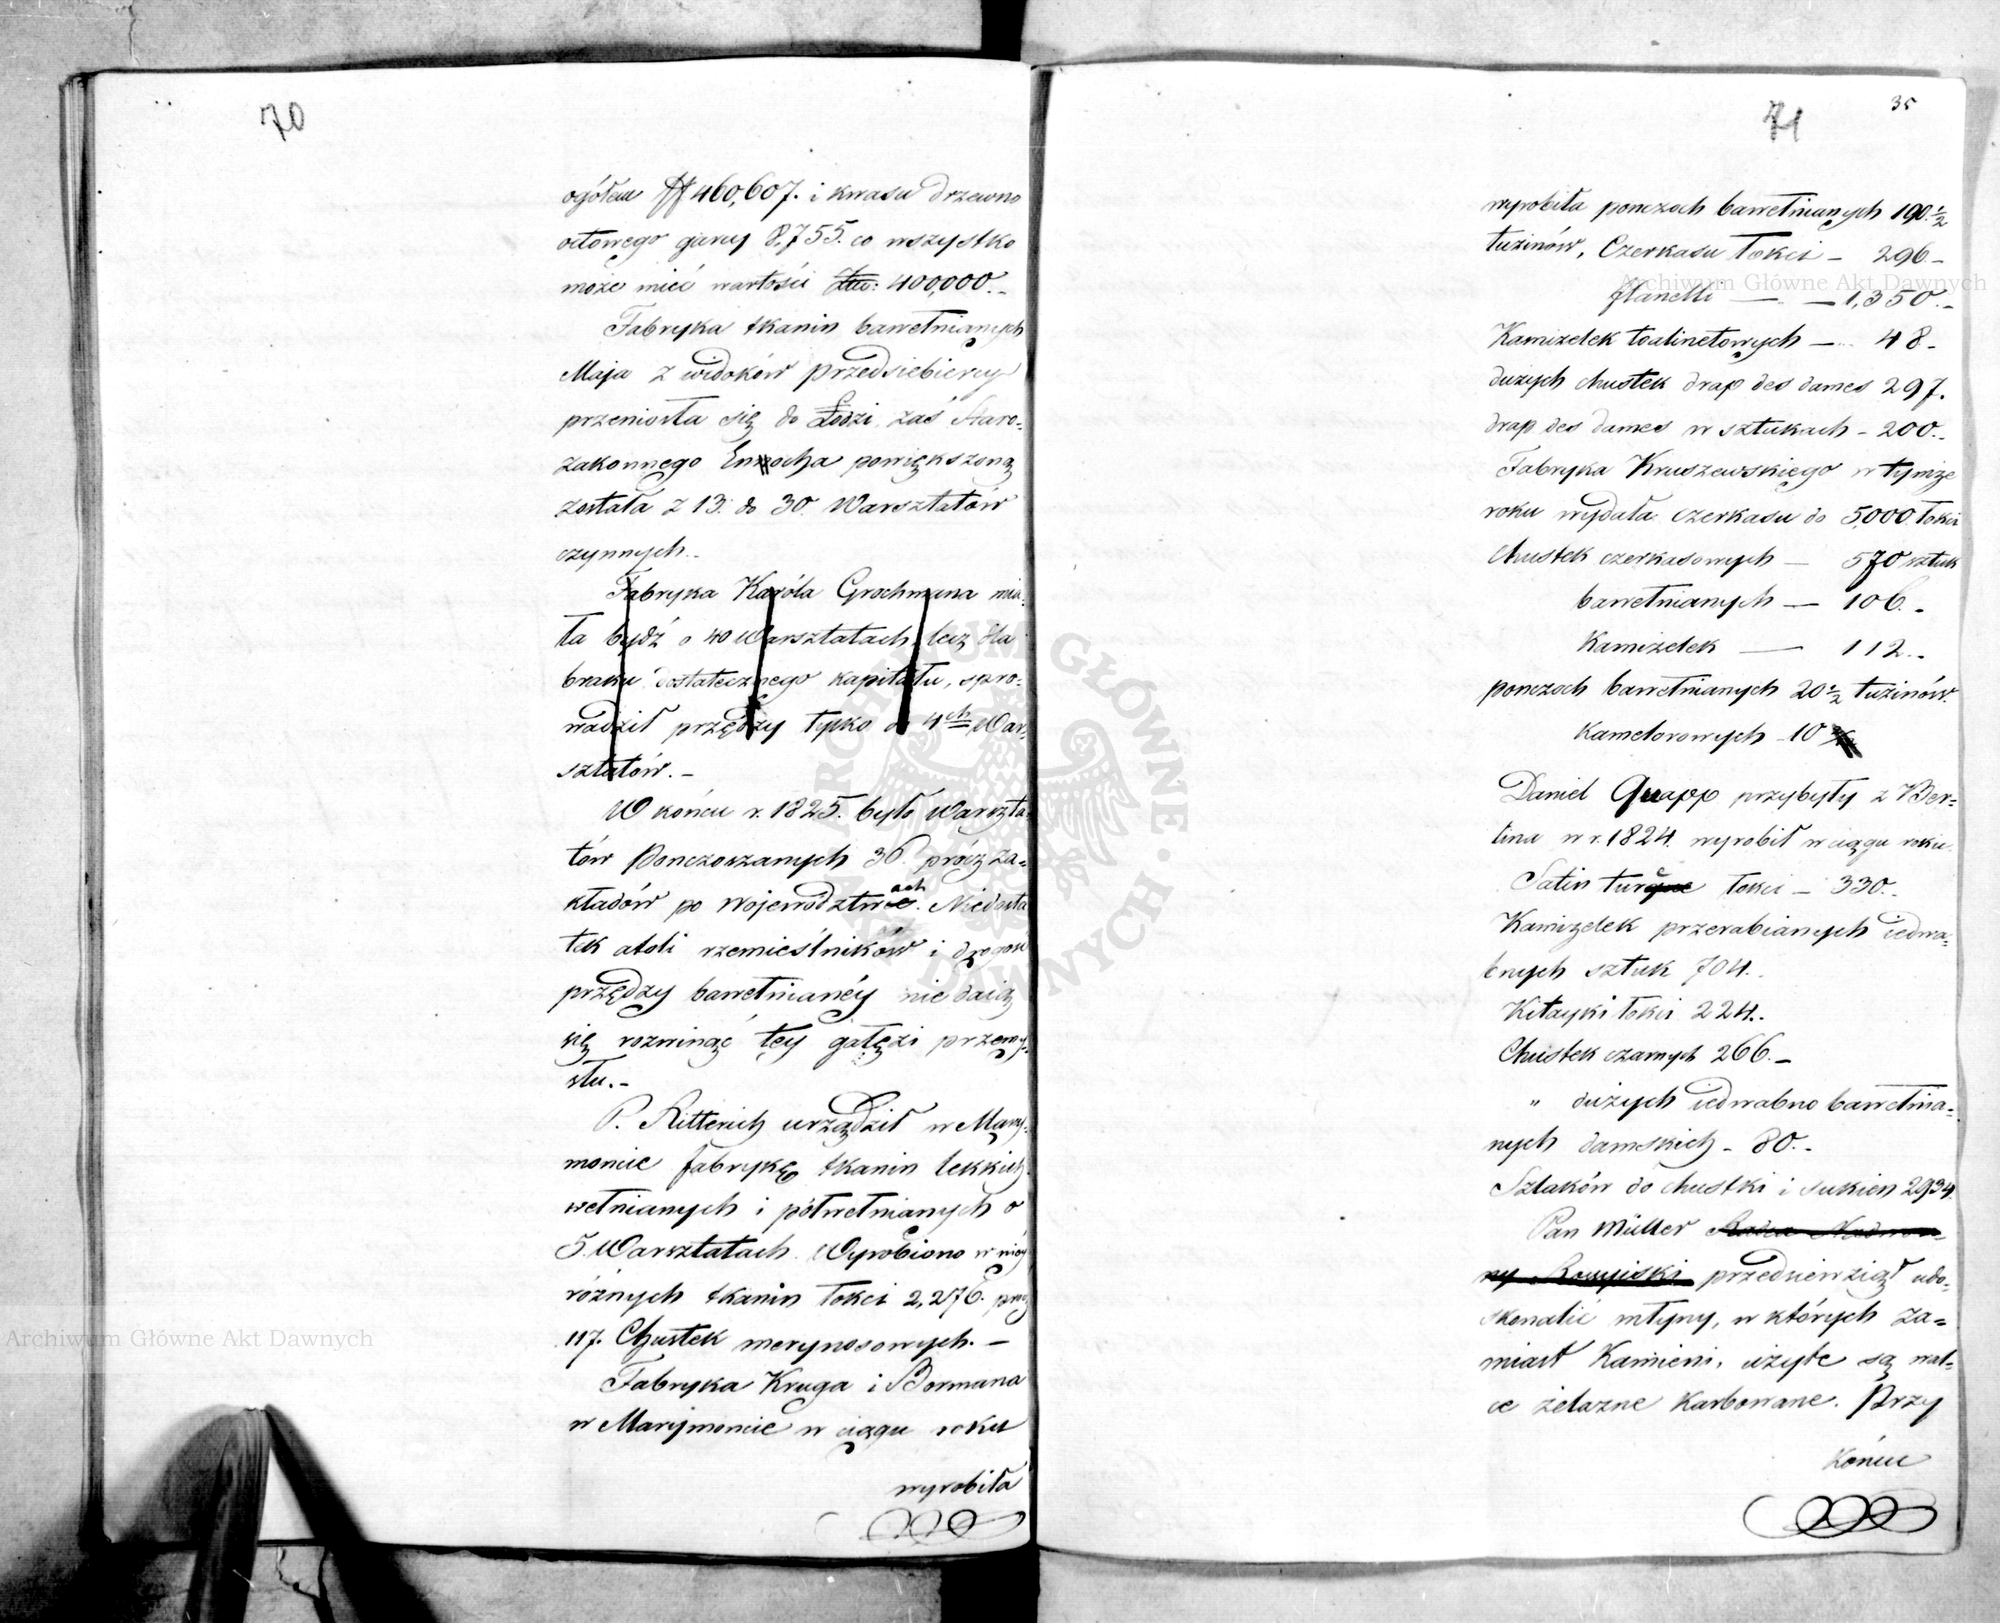 70
ogółem ₶ 460,607. i kwasu drzewno
octowego garcy 8,755. co wszystko
może mieć wartości Złw: 400,000._
Fabryka tkanin bawełnianych
Maja z widoków przedsiebiercy
przeniosła się do Łodzi, zaś Staro-
zakonnego Enocha powiększoną
została z 13. do 30. Warsztatów
czynnych._
Fabryka Karóla Grochmana mia-
ła bydź o 40 Warsztatach, lecz dla
braku dostatecznego kapitału, spro-
wadził przędzy tylko do 4ch War-
sztatów._
W końcu r. 1825. było Warszta-
tów Ponczoszanych 36. prócz Za-
kładów po Województwach. Niedosta-
tek atoli rzemieślników i drogość
przędzy bawełnianéy nie daią
się rozwinąć téy gałęzi przemy-
słu._
P. Ritterich urządził w Mary-
moncie fabrykę tkanin lekkich
wełnianych i półwełnianych o
5. Warsztatach. Wyrobiono w niéy
różnych tkanin łokci 2,276. prócz
117. Chustek merynosowych._
Fabryka Kruga i Bormana
w Marymoncie w ciągu roku
wyrobiła
71
35
wyrobiła ponczoch bawełnianych 190.½
tuzinów, Czerkasu łokci – 296–
flanelli — — 1,350._
Kamizelek toalinetowych — 48–
dużych chustek drap des dames 297.
drap des dames w sztukach – 200._
Fabryka Kruszewskiego w tymże
roku wydała czerkasu do 5,000. łokci
Chustek czerkasowych — 570 sztuk
bawełnianych — 106._
Kamizelek — 112._
ponczoch bawełnianych 20½ tuzinów.
Kamelorowych – 10
Daniel Quapp przybyły z Ber-
lina w r. 1824. wyrobił w ciągu roku
Satin turc łokci – 330._
Kamizelek przerabianych iedwa-
bnych sztuk 704._
Kitayki łokci 224._
Chustek czarnych 266._
" dużych iedwabno bawełnia-
nych damskich – 80._
Szlaków do chustki i sukien 2934.
Pan Müller Radca Nadwor-
ny Rossyiski przedsiewziął udo-
skonalić młyny, w których za-
miast Kamieni, użyte są wal-
ce żelazne karbowane. Przy
końcu
Archiwum Główne Akt Dawnych
Archiwum Główne Akt Dawnych
ARCHIWUM GŁÓWNE AKT DAWNYCH